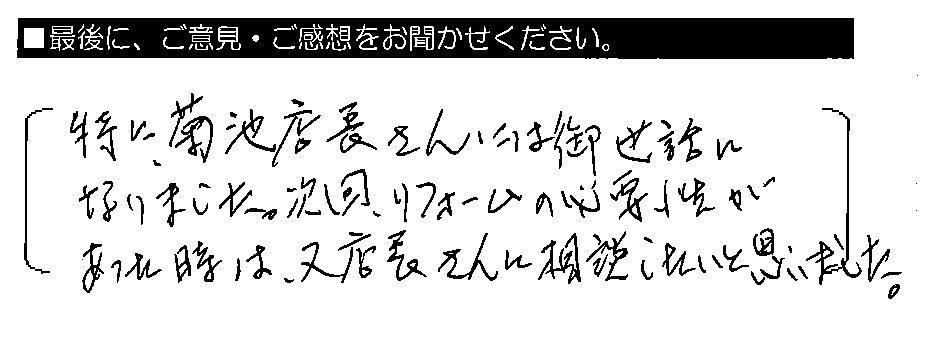 ■最後に、ご意見・ご感想をお聞かせください。
特に、菊池店長さんには御世話に
なりました。次回、リフォームの必要性が
あった時は、又店長さんに相談したいと思いました。